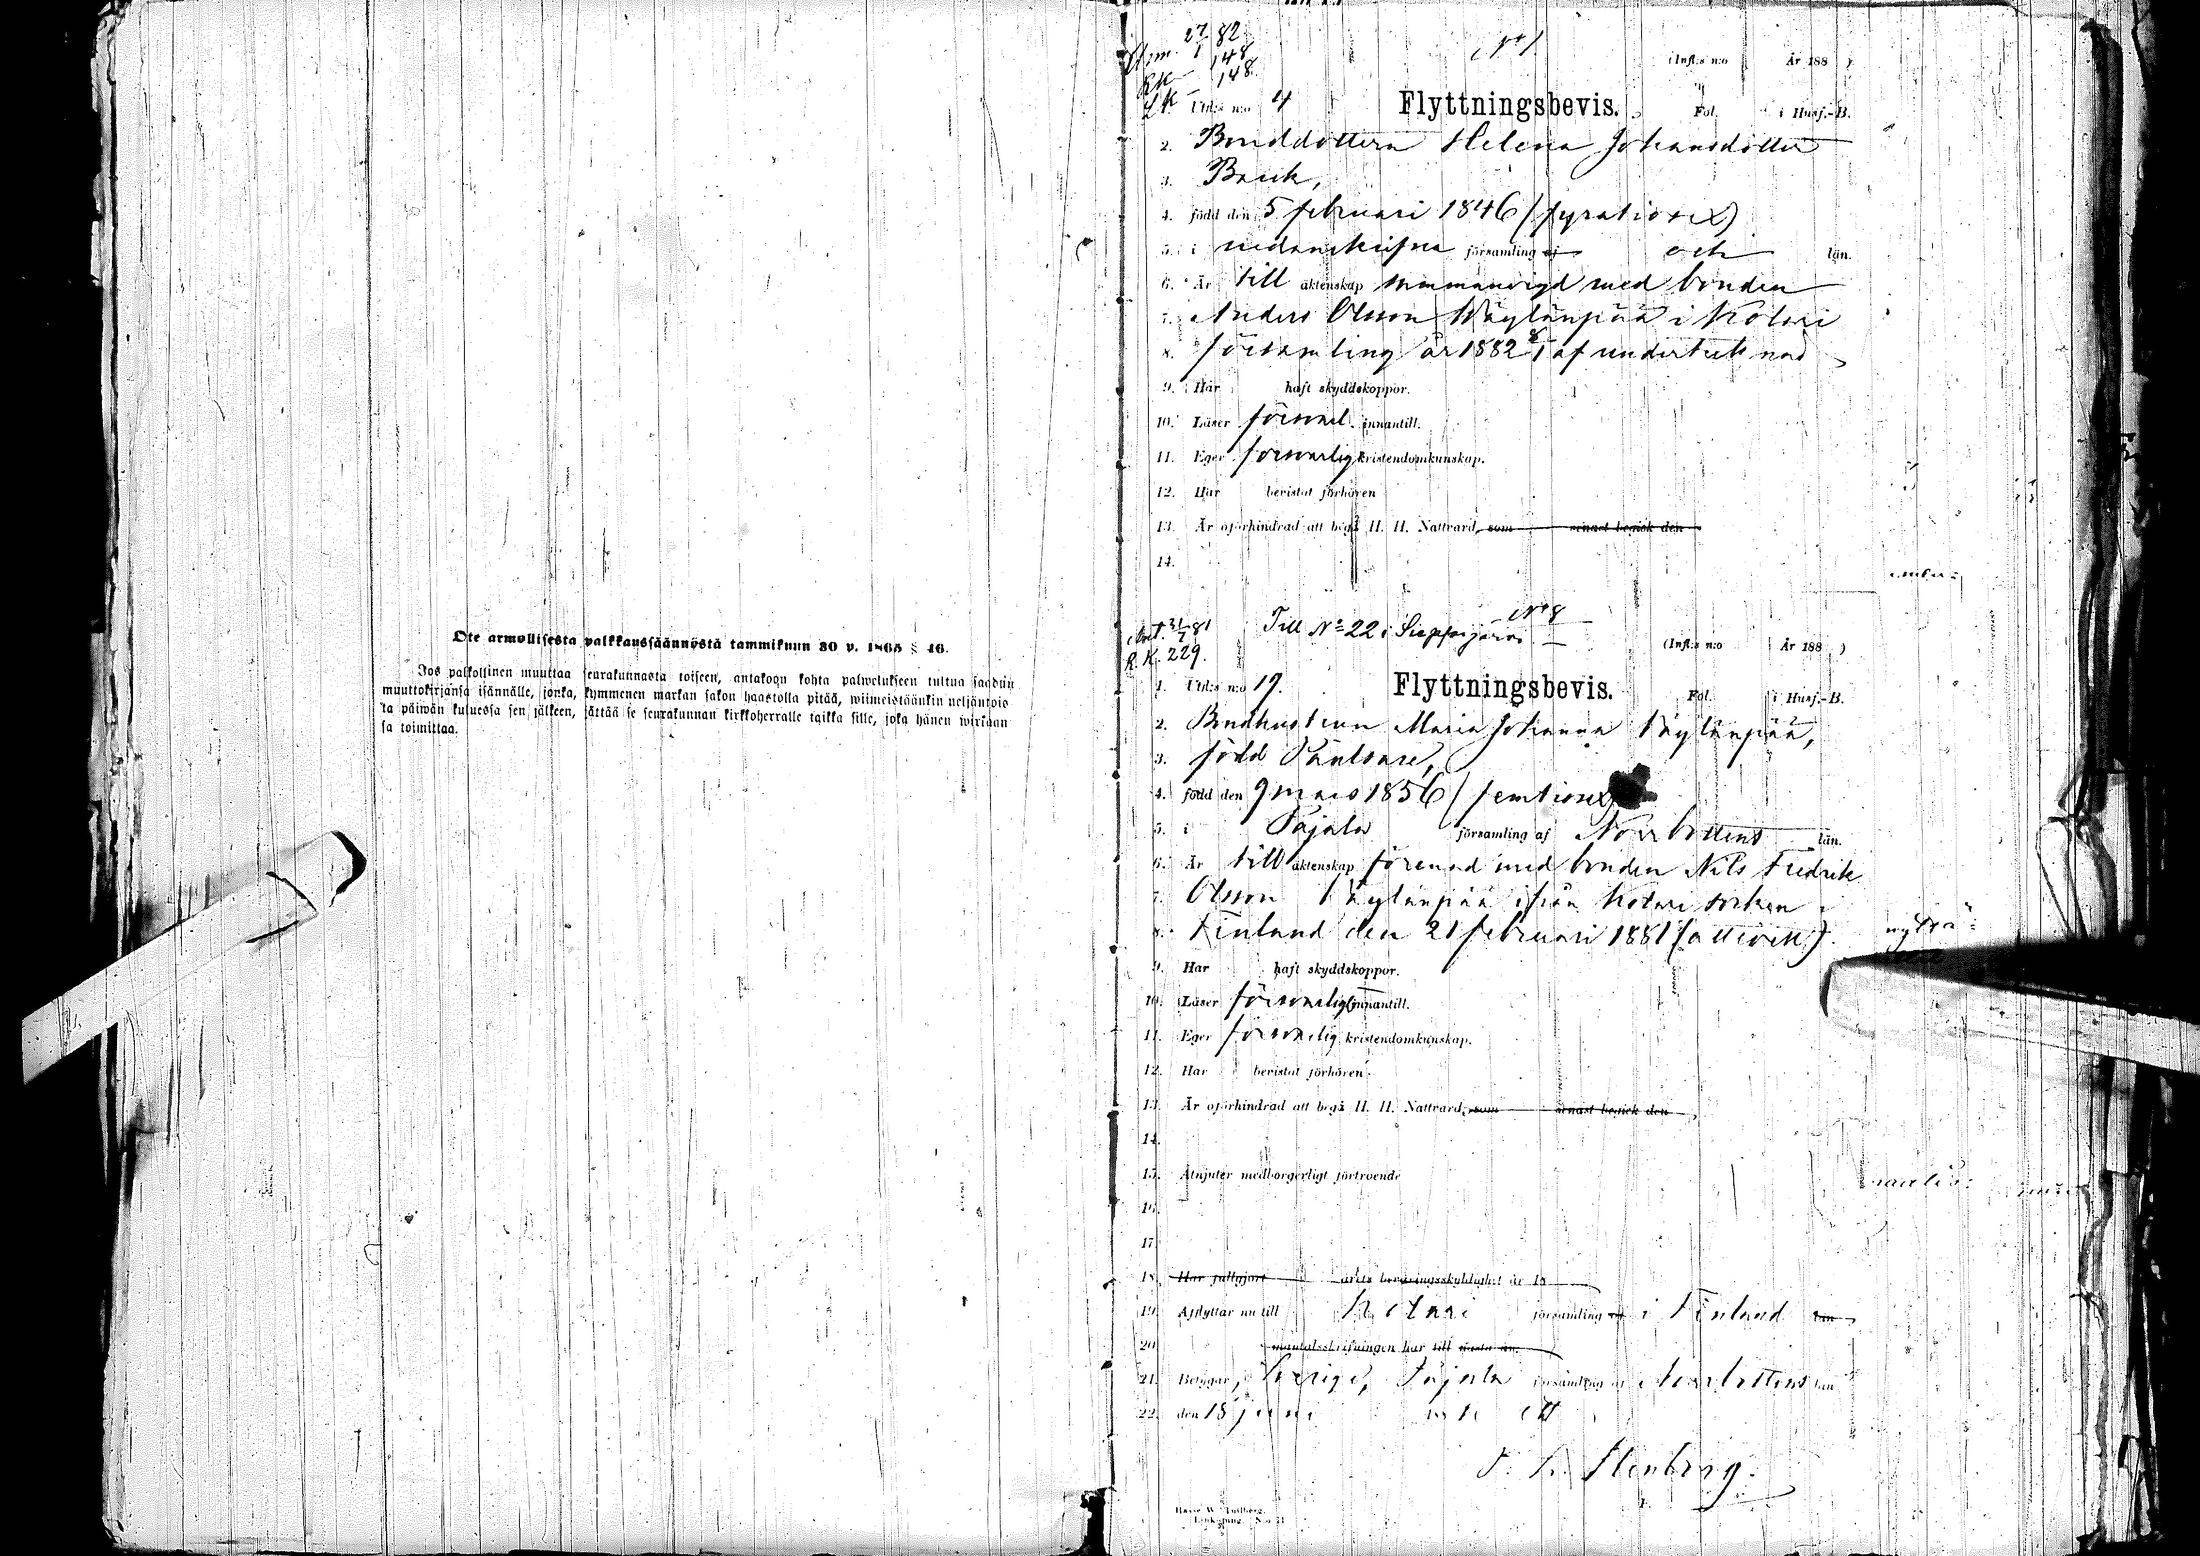 Ote armollisesta palkkaussäännöstä tammikuun 30 p. 1865 § 46.
Jos palkollinen muuttaa seurakunnasta toiseen, antakoon kohta palwelukseen tultua saadun
muuttokirjansa isännälle, jonka, kymmenen markan sakon haastolla pitää, wiimeistäänkin neljäntois
ta päiwän kuluessa sen jälkeen, jättää se seurakunnan kirkkoherralle taikka sille, joka hänen wirkaan
sa toimittaa.
27 82
1 148
RK 148
LK
No 1
(Infl:s n:o År 188 )
Utfl:s n:o 4
Flyttningsbevis.
Fol. i Husf.-B.
2. Bonddottern Helena Johansdotter
3. Bauk,
4. född den 5 februari 1846 (fyratiosex)
5. i nedanskrifne församling af och län.
6. Är till äktenskap sammanvigd med bonden
7. Anders Olsson Wäylänpää i Kolari
8. församling år 1882 af undertecknad
9. Har haft skyddskoppor.
10. Läser försvarl. innantill.
11. Eger försvarlig kristendomkunskap.
12. Har bevistat förhören
13. Är oförhindrad att begå H. H. Nattvard, som senast begick den
14.
No 8
Till No 22 i Sieppijärvi
R. K. 229.
(Infl:s n:o År 188 )
1. Utfl:s n:o 19.
Flyttningsbevis.
Fol. i Husf.-B.
2. Bondhustrun Maria Johanna Wäylänpää,
3. född
4. född den 9 mars 1856 (femtiosex)
5. i Pajala församling af Norrbottens län.
6. Är till äktenskap förenad med bonden Nils Fredrik
7. Olsson Wäylänpää ifrån Kolari socken i
8. Finland den 21 februari 1881 (åttioett).
9. Har haft skyddskoppor.
10. Läser försvarlig innantill.
11. Eger försvarlig kristendomkunskap.
12. Har bevistat förhören
13. Är oförhindrad att begå H. H. Nattvard, som senast begick den
14.
15. Åtnjuter medborgerligt förtroende
16.
17.
18. Har fullgjort årets beväringsskyldighet år 18
19. Afflyttar nu till Kolari församling af i Finland län
20. mantalsskrifningen har till nästa år.
21. Betygar, Sverige, Pajala församling af Norrbottens län
22. den 18 juni ett
Stenborg.